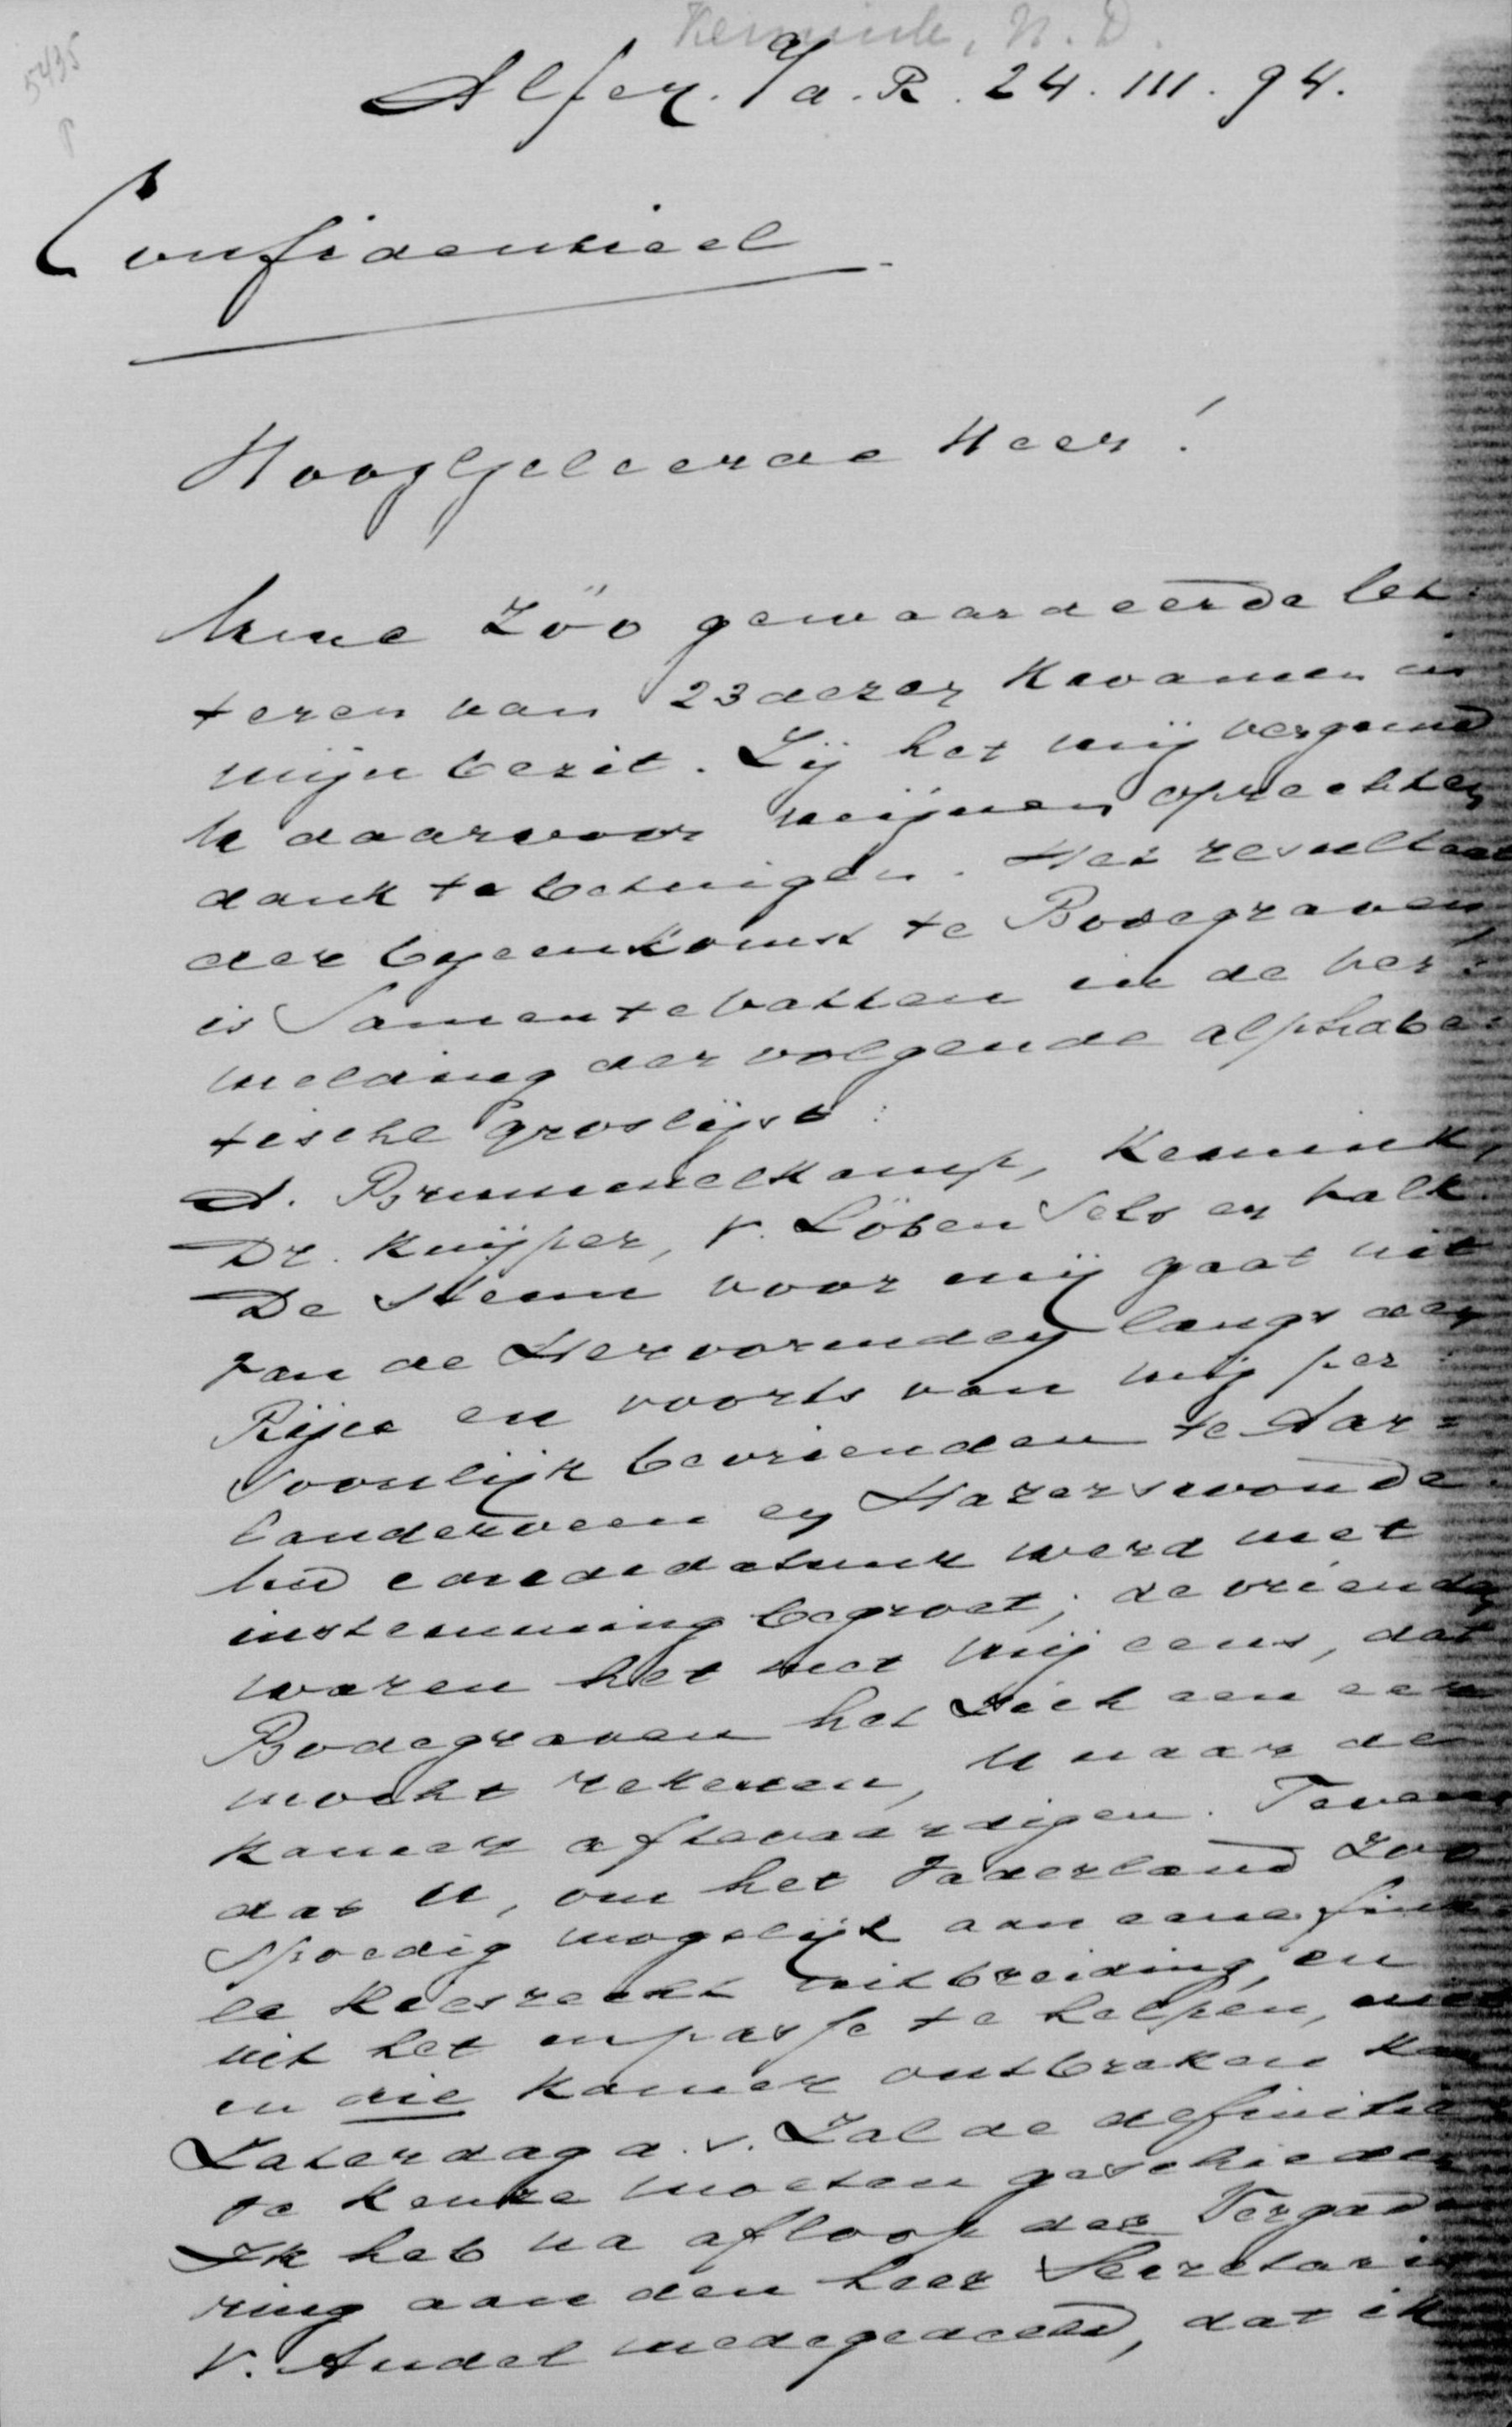 Kemink, N. D.
5435
Alfen. a/a. R. 24. III. 94.
Confidentieel
Hooggeleerde Heer!
Uwe zóó gewaardeerde let-
teren van 23 dezer kwamen in
mijn bezit. Zij het mij vergund
U daarvoor mijnen oprechten
dank te betuigen. Het resultaat
der bijeenkomst te Bodegraven
is samen te vatten in de ver-
melding der volgende alphabe-
tische groslijst:
A. Brummelkamp, Kemink,
Dr. Kuijper, v. Löben Sels en Valk.
De stem voor mij gaat uit
van de Hervormden langs den
Rijn en voorts van mij per-
soonlijk bevrienden te Aar-
landerveen en Hazerswoude.
Uw candidatuur werd met
instemming begroet; de vrienden
waren het met mij eens, dat
Bodegraven het zich een eer
mocht rekenen, U naar de
Kamer aftevaardigen. Tevens
dat U, om het Vaderland zoo
spoedig mogelijk aan eene fink-
le Kiesrecht uitbreiding, en
uit het inpasse te helpen, niet
in die Kamer ontbreken kan
Zaterdag a. s. zal de definitie-
ve keuze moeten geschieden
Ik heb na afloop der Vergade-
ring aan den heer Secretaris
v. Andel medegedeeld, dat ik